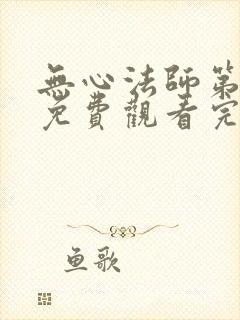 無心法師第
免費觀看完
鱼歌